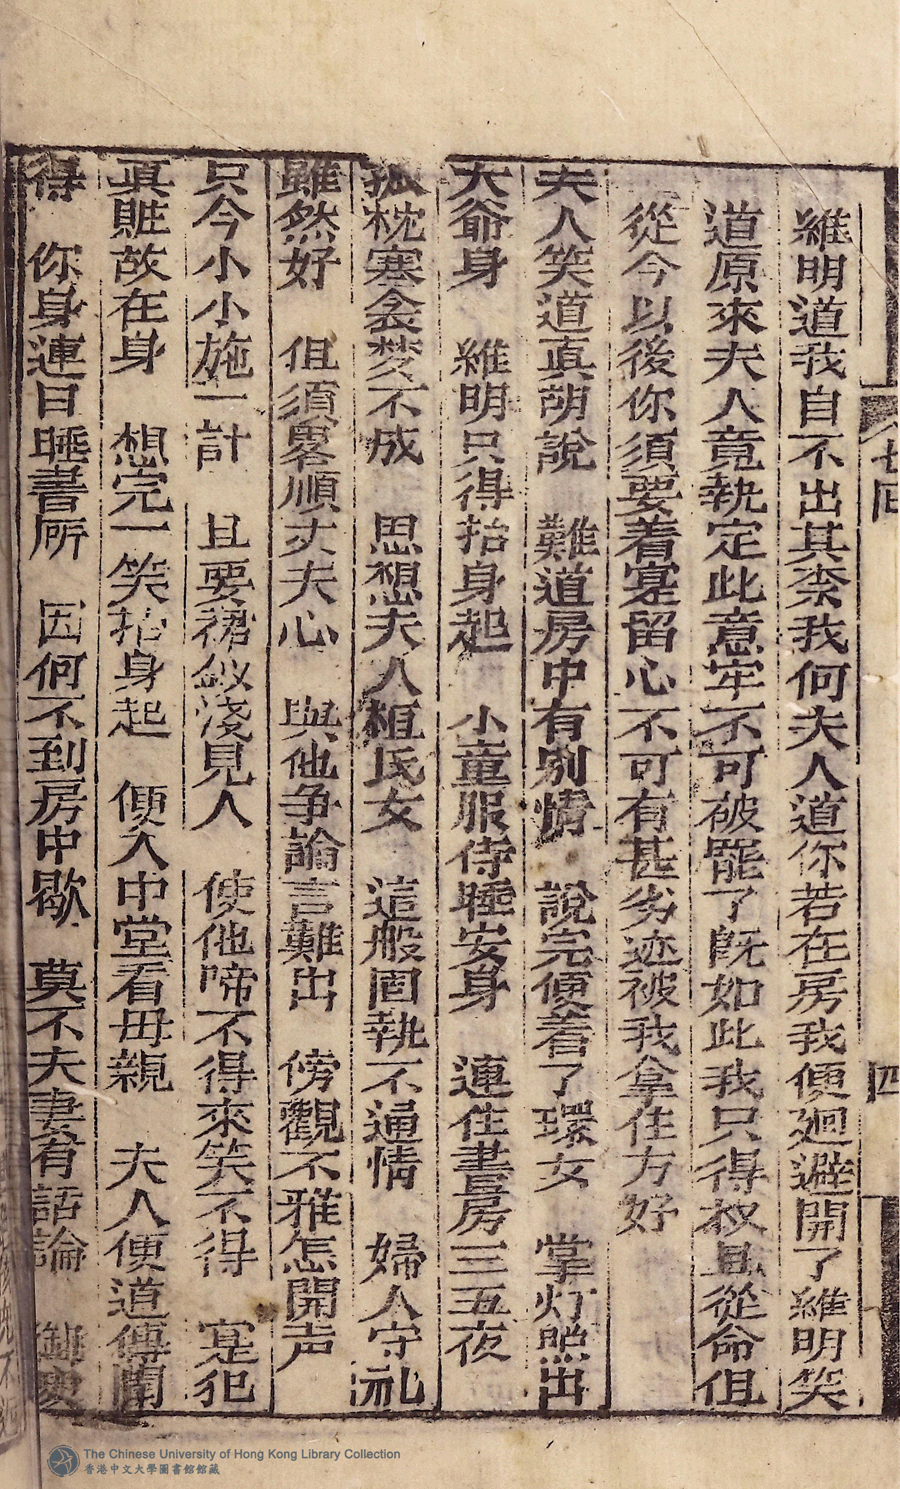 維明道我自不出其柰我何夫人道你若在房我便廻避開了維明笑
道原來夫人竟執定此意牢不可破罷了既如此我只得权且從命但
從今以後你須要着寔留心不可有甚劣迹被我拿住方好
夫人笑道真胡說 難道房中有别情 說完便着了環女 掌灯照出
大爺身 維明只得抬身起 小童服侍睡安身 連住書房三五夜
孤枕寒衾梦不成 思想夫人桓氏女 這般固執不通情 婦人守礼
雖然好 但須畧順丈夫心 與他争論言難出 傍觀不雅怎開声
只今小小施一計 且要裙釵淺見人 使他啼不得來笑不得 寔犯
真賍故在身 想完一笑抬身起 便入中堂看母親 夫人便道傳聞
得 你身連日睡書所 因何不到房中歇 莫不夫妻有話論
七回
四
The Chinese University of Hong Kong Library Collection
香港中文大學圖書館館藏